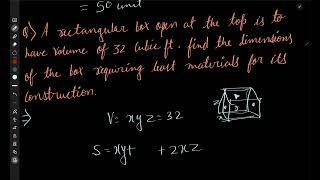 = 50 unit
Q⟩ A rectangular box open at the top is to
have volume of 32 cubic ft. find the dimensions
of the box requiring least materials for its
construction.
⇒
V = xyz = 32
S = xy+ +2xz